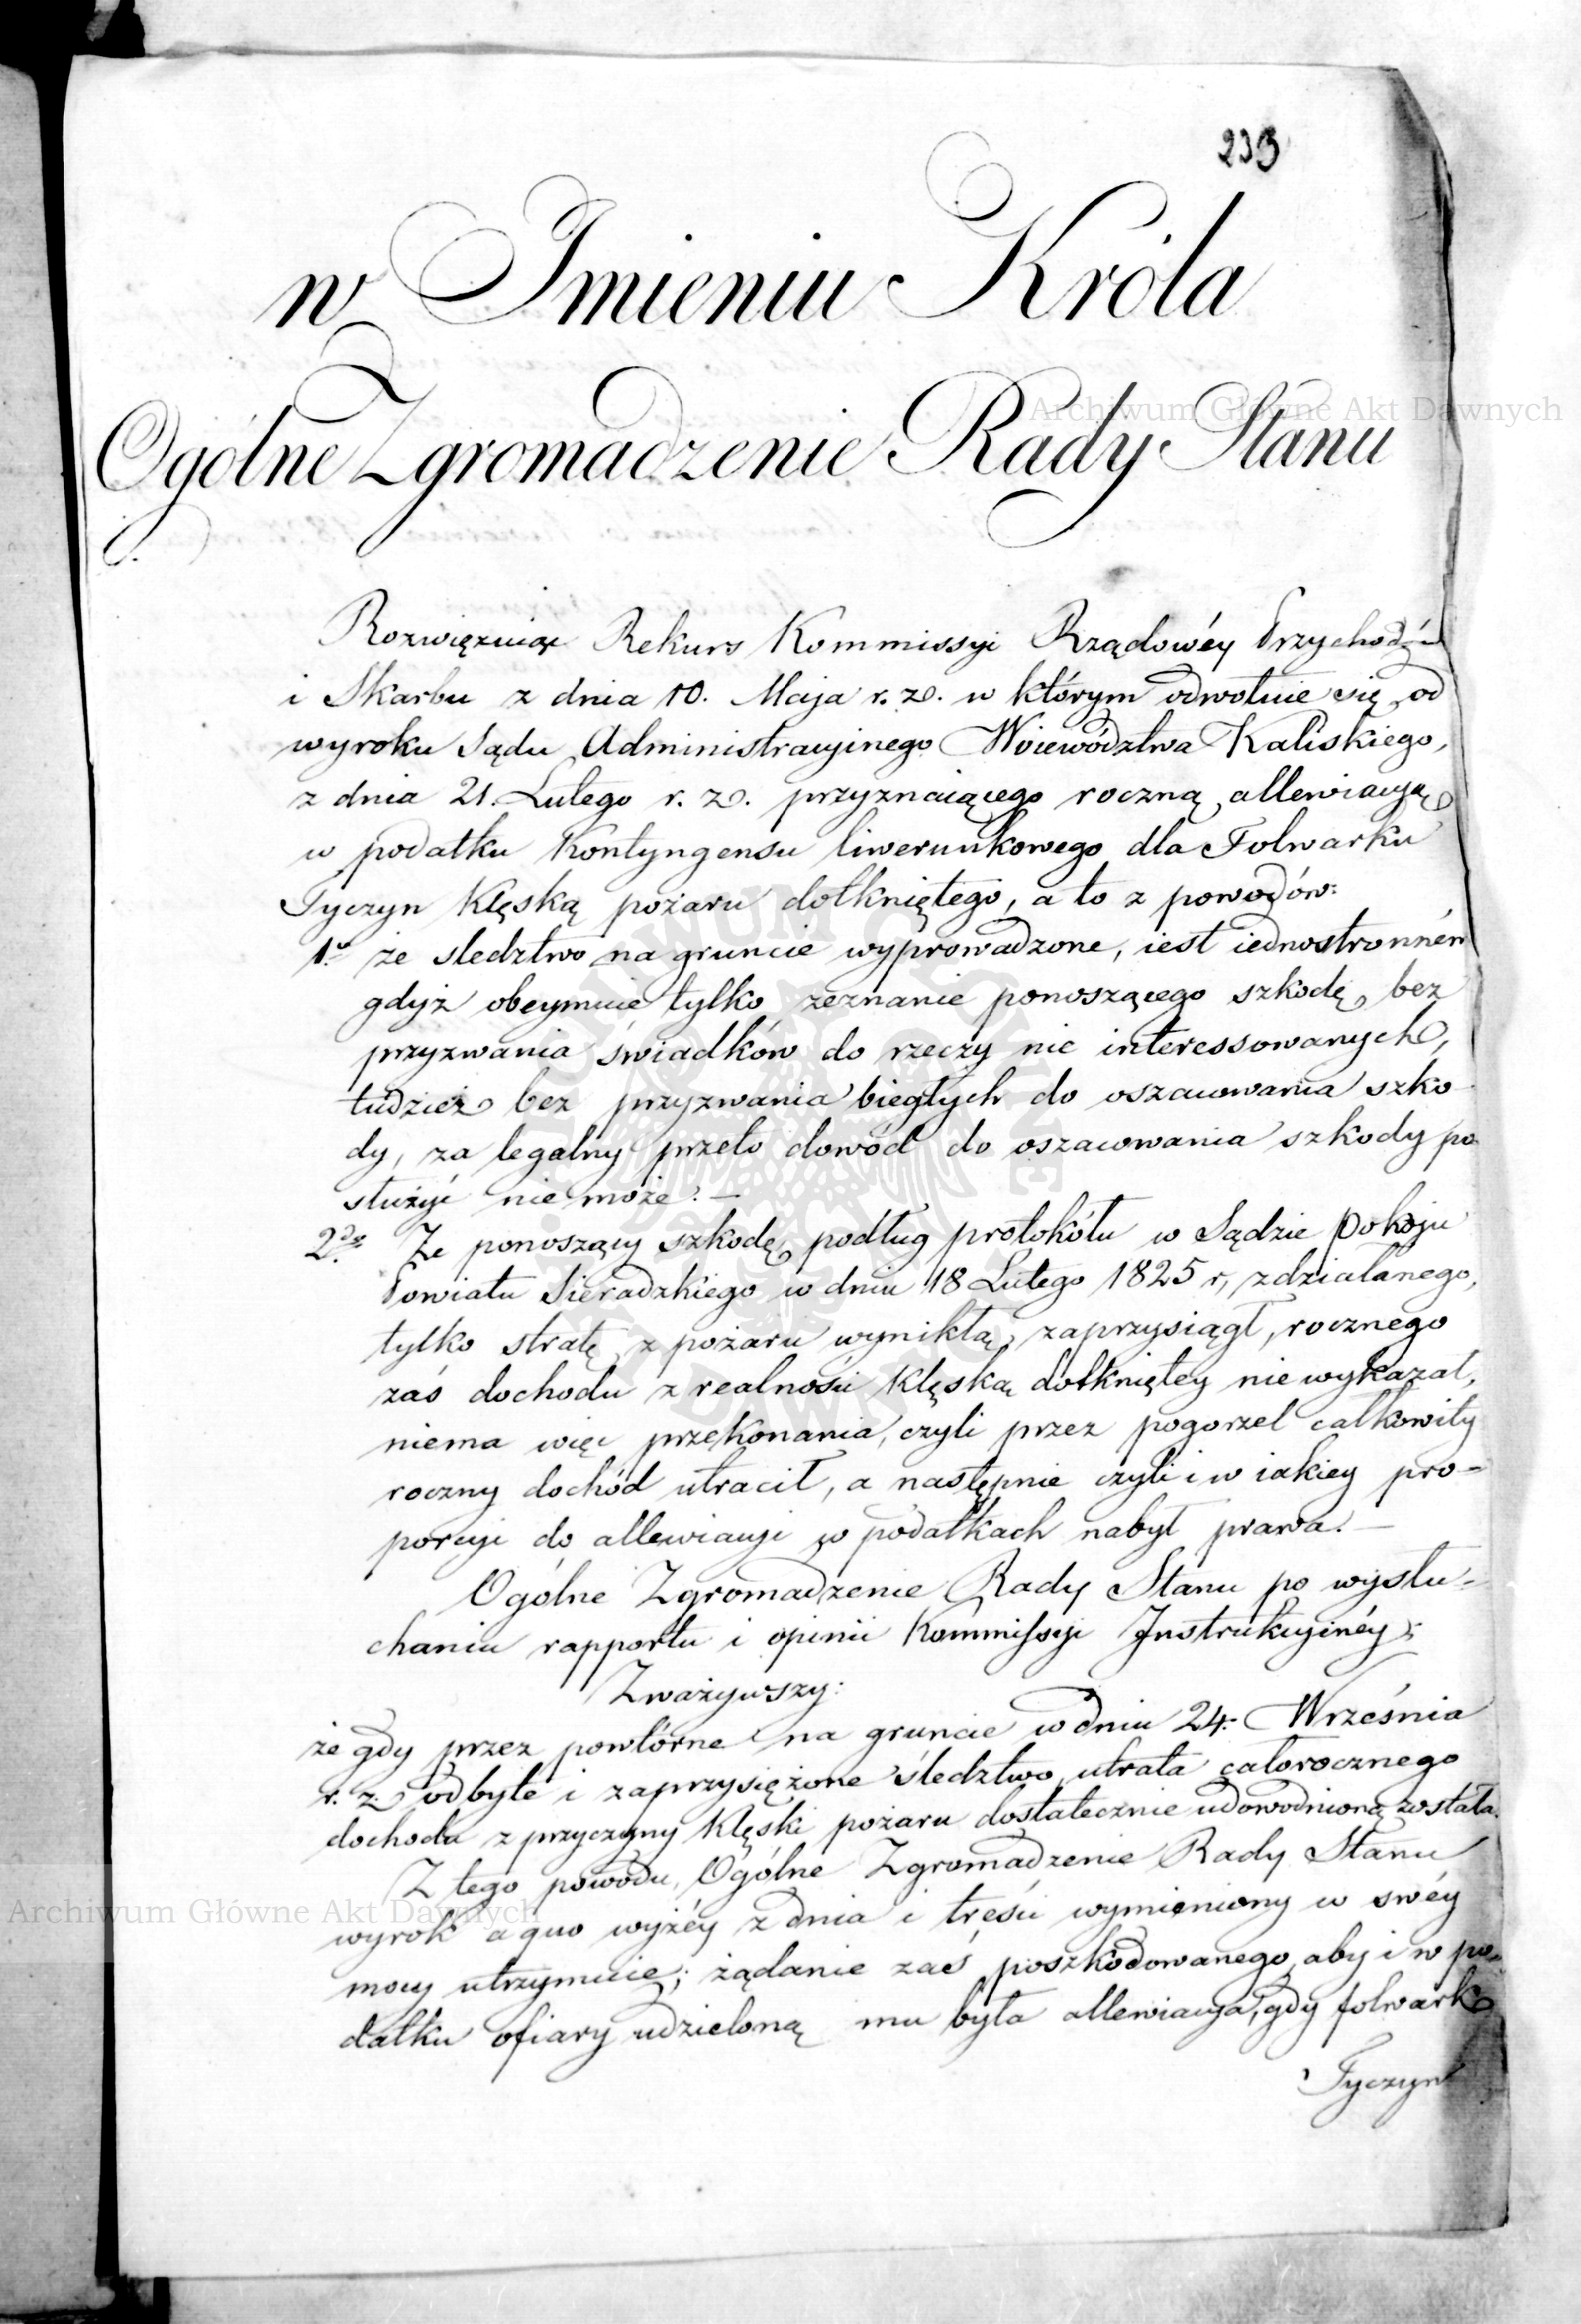 233
w Imieniu Króla
Ogólne Zgromadzenie Rady Stanu
Rozwięzuiąc Rekurs Kommissyi Rządowéy Przychodów
i Skarbu z dnia 10. Maja r. z. w którym odwołuie się od
wyroku Sądu Administracyinego Woiewództwa Kaliskiego,
z dnia 21. Lutego r. z. przyznaiącego roczną allewiacyą
w podatku Kontyngensu liwerunkowego dla Folwarku
Tyczyn Klęską pożaru dotkniętego, a to z powodów:
1o że sledztwo na gruncie wyprowadzone, iest iednostronném
gdyż obeymuie tylko zeznanie ponoszącego szkodę, bez
przyzwania świadków do rzeczy nie interessowanych,
tudzież bez przyzwania biegłych do oszacowania szko-
dy, za legalny przeto dowód do oszacowania szkody po
służyć nie może. —
2do Że ponoszący szkodę podług protokółu w Sądzie Pokoju
Powiatu Sieradzkiego w dniu 18 Lutego 1825 r, zdziałanego,
tylko stratę z pożaru wynikłą, zaprzysiągł, rocznego
zaś dochodu z realności Klęską dotkniętey nie wykazał,
niema więc przekonania, czyli przez pogorzel całkowity
roczny dochód utracił, a następnie czyli i w iakiey pro-
porcyi do allewiacyi w podatkach nabył prawa. —
Ogólne Zgromadzenie Rady Stanu po wysłu-
chaniu rapportu i opinii Kommissyi Instrukcyinéy;
Zważywszy:
że gdy przez powtórne na gruncie w dniu 24. Września
r. z. odbyte i zaprzysiężone śledztwo utrata całorocznego
dochodu z przyczyny Klęski pożaru dostatecznie udowodnioną została.
Z tego powodu, Ogólne Zgromadzenie Rady Stanu
wyrok a quo wyżéy z dnia i treści wymieniony w swéy
mocy utrzymuie; żądanie zaś poszkodowanego, aby i w po-
datku ofiary udzieloną mu była allewiacya, gdy folwark
Tyczyn
Archiwum Główne Akt Dawnych
Archiwum Główne Akt Dawnych